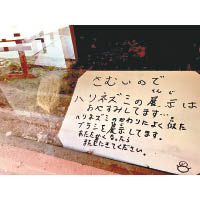 さむいので
てんじ
ハリネズミの展示は
おやすみしてます…
ハリネズミのかわりによく似た
ブラシを展示してます。
あたたかくなったら
また見にきてください。